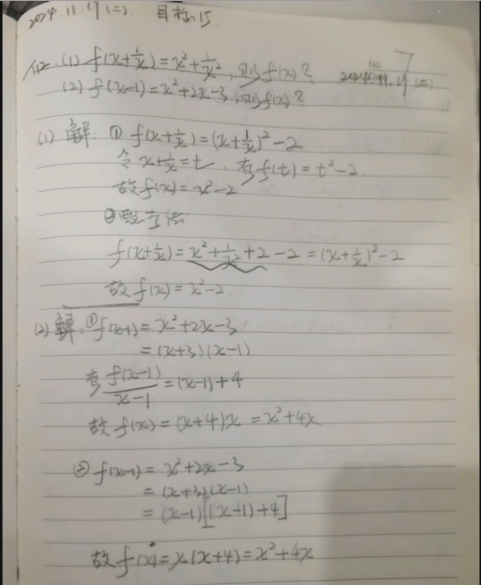 2024.11.19(二)
No.
7
(1) f(x+1/x)=x²+1/x²,则f(x)?
2024.11.19(二)
(2) f(x-1)=x²+2x-3,则f(x)?
(1) 解:① f(x+1/x)=(x+1/x)²-2
令x+1/x=t, 有f(t)=t²-2
故f(x)=x²-2
②
f(x+1/x)=x²+1/x²+2-2=(x+1/x)²-2
故f(x)=x²-2.
(2) 解:① f(x-1)=x²+2x-3
=(x+3)(x-1)
有 f(x-1)/(x-1)=(x-1)+4
故f(x)=(x+4)x=x²+4x
② f(x-1)=x²+2x-3
=(x+3)(x-1)
=(x-1)[(x-1)+4]
故f(x)=x(x+4)=x²+4x